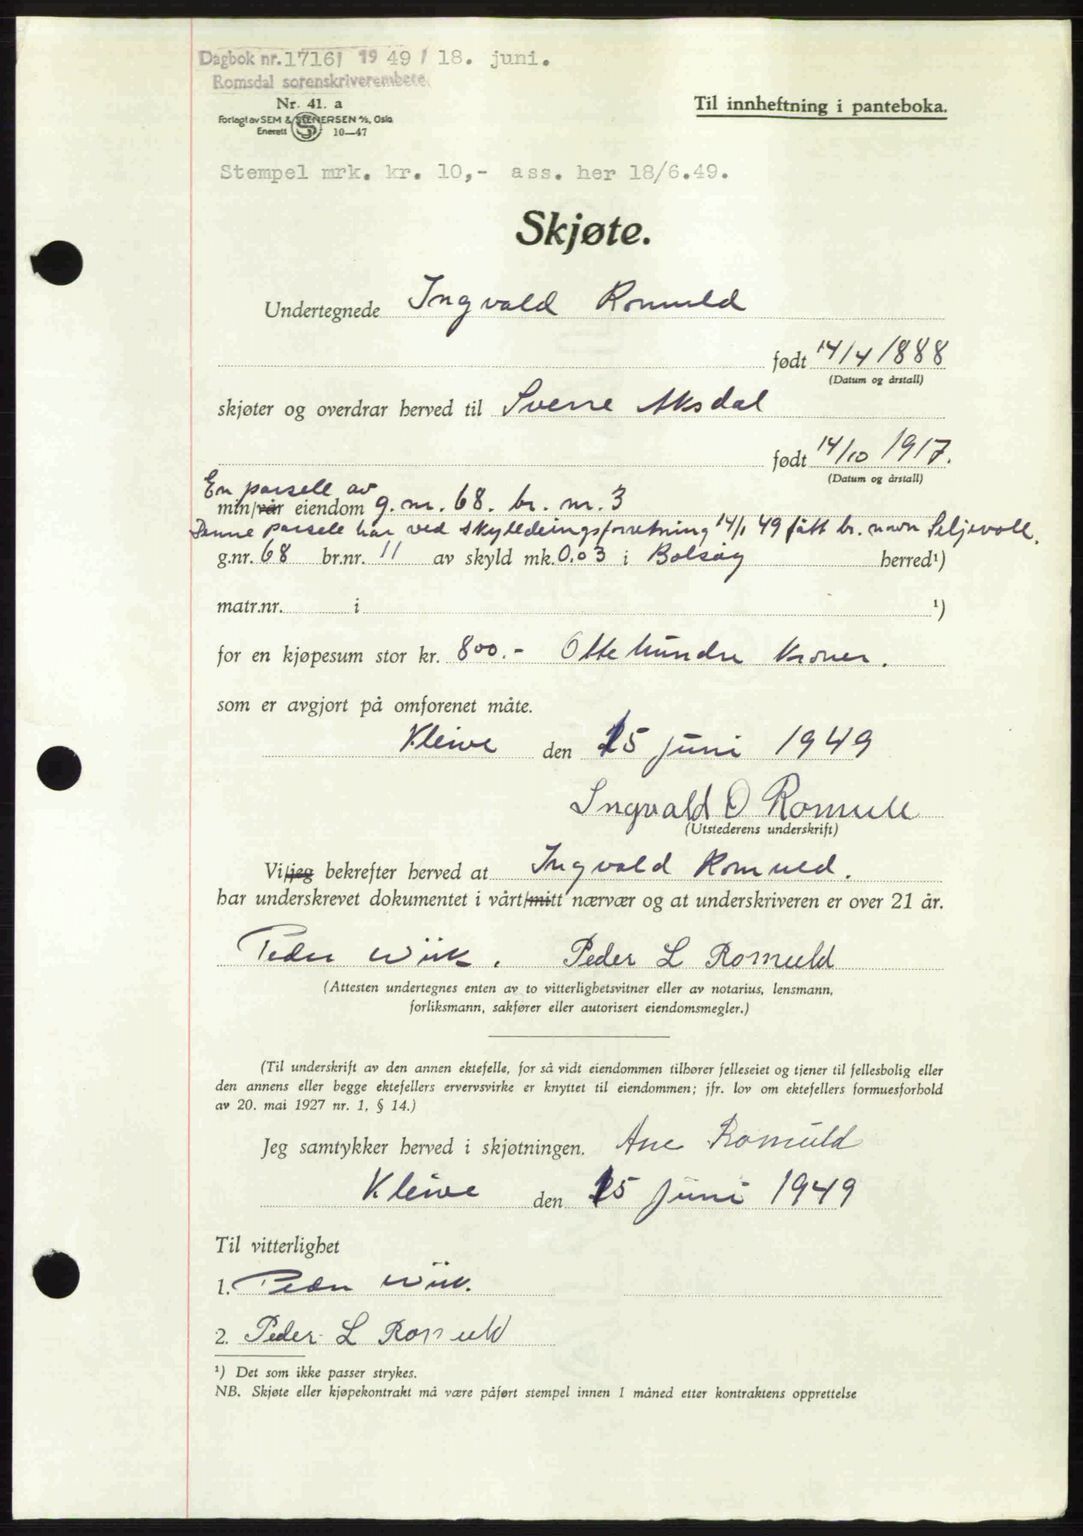 Dagbok nr. 1716/ 1949 / 18. juni.
Romsdal sorenskriverembete
Nr. 41. a
Forlagt av SEM & STENERSEN A/S, Oslo
Enerett 10—47
Til innheftning i panteboka.
Stempel mrk. kr. 10,- ass. her 18/6.49.
Skjøte.
Undertegnede Ingvald Romuld
født 14/4 1888
(Datum og årstall)
skjøter og overdrar herved til Sverre Aksdal
født 14/10 1917.
(Datum og årstall)
En parsell av
min/vår eiendom g. nr. 68. br. nr. 3
Denne parsele har ved skylddeingsforretning 14/1 49 fått br. navn Seljevoll.
g.nr. 68 br.nr. 11 av skyld mk. 0.03 i Bolsøy herred¹)
matr.nr. i ¹)
for en kjøpesum stor kr. 800.- Otte hundre kroner.
som er avgjort på omforenet måte.
Kleive den 15 juni 1949
Ingvald O Romuld
(Utstederens underskrift)
Vi/jeg bekrefter herved at Ingvald Romuld.
har underskrevet dokumentet i vårt/mitt nærvær og at underskriveren er over 21 år.
Peder Wiik. Peder L Romuld
(Attesten undertegnes enten av to vitterlighetsvitner eller av notarius, lensmann,
forliksmann, sakfører eller autorisert eiendomsmegler.)
(Til underskrift av den annen ektefelle, for så vidt eiendommen tilhører felleseiet og tjener til fellesbolig eller
den annens eller begge ektefellers ervervsvirke er knyttet til eiendommen; jfr. lov om ektefellers formuesforhold
av 20. mai 1927 nr. 1, § 14.)
Jeg samtykker herved i skjøtningen. Ane Romuld
Kleive den 15 juni 1949
Til vitterlighet
1. Peder Wiik.
2. Peder L Romuld
¹) Det som ikke passer strykes.
NB. Skjøte eller kjøpekontrakt må være påført stempel innen 1 måned etter kontraktens opprettelse